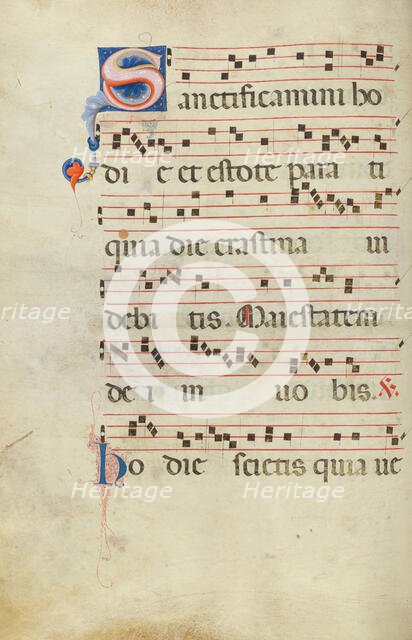 Sanctificamini ho
di e et estote para ti
quia die crastina ui
debi tis. Maiestatem
de i in uo bis. ℣.
ho die scietis quia ue
Heritage
Heritage
Heritage
Heritage
Heritage
Heritage